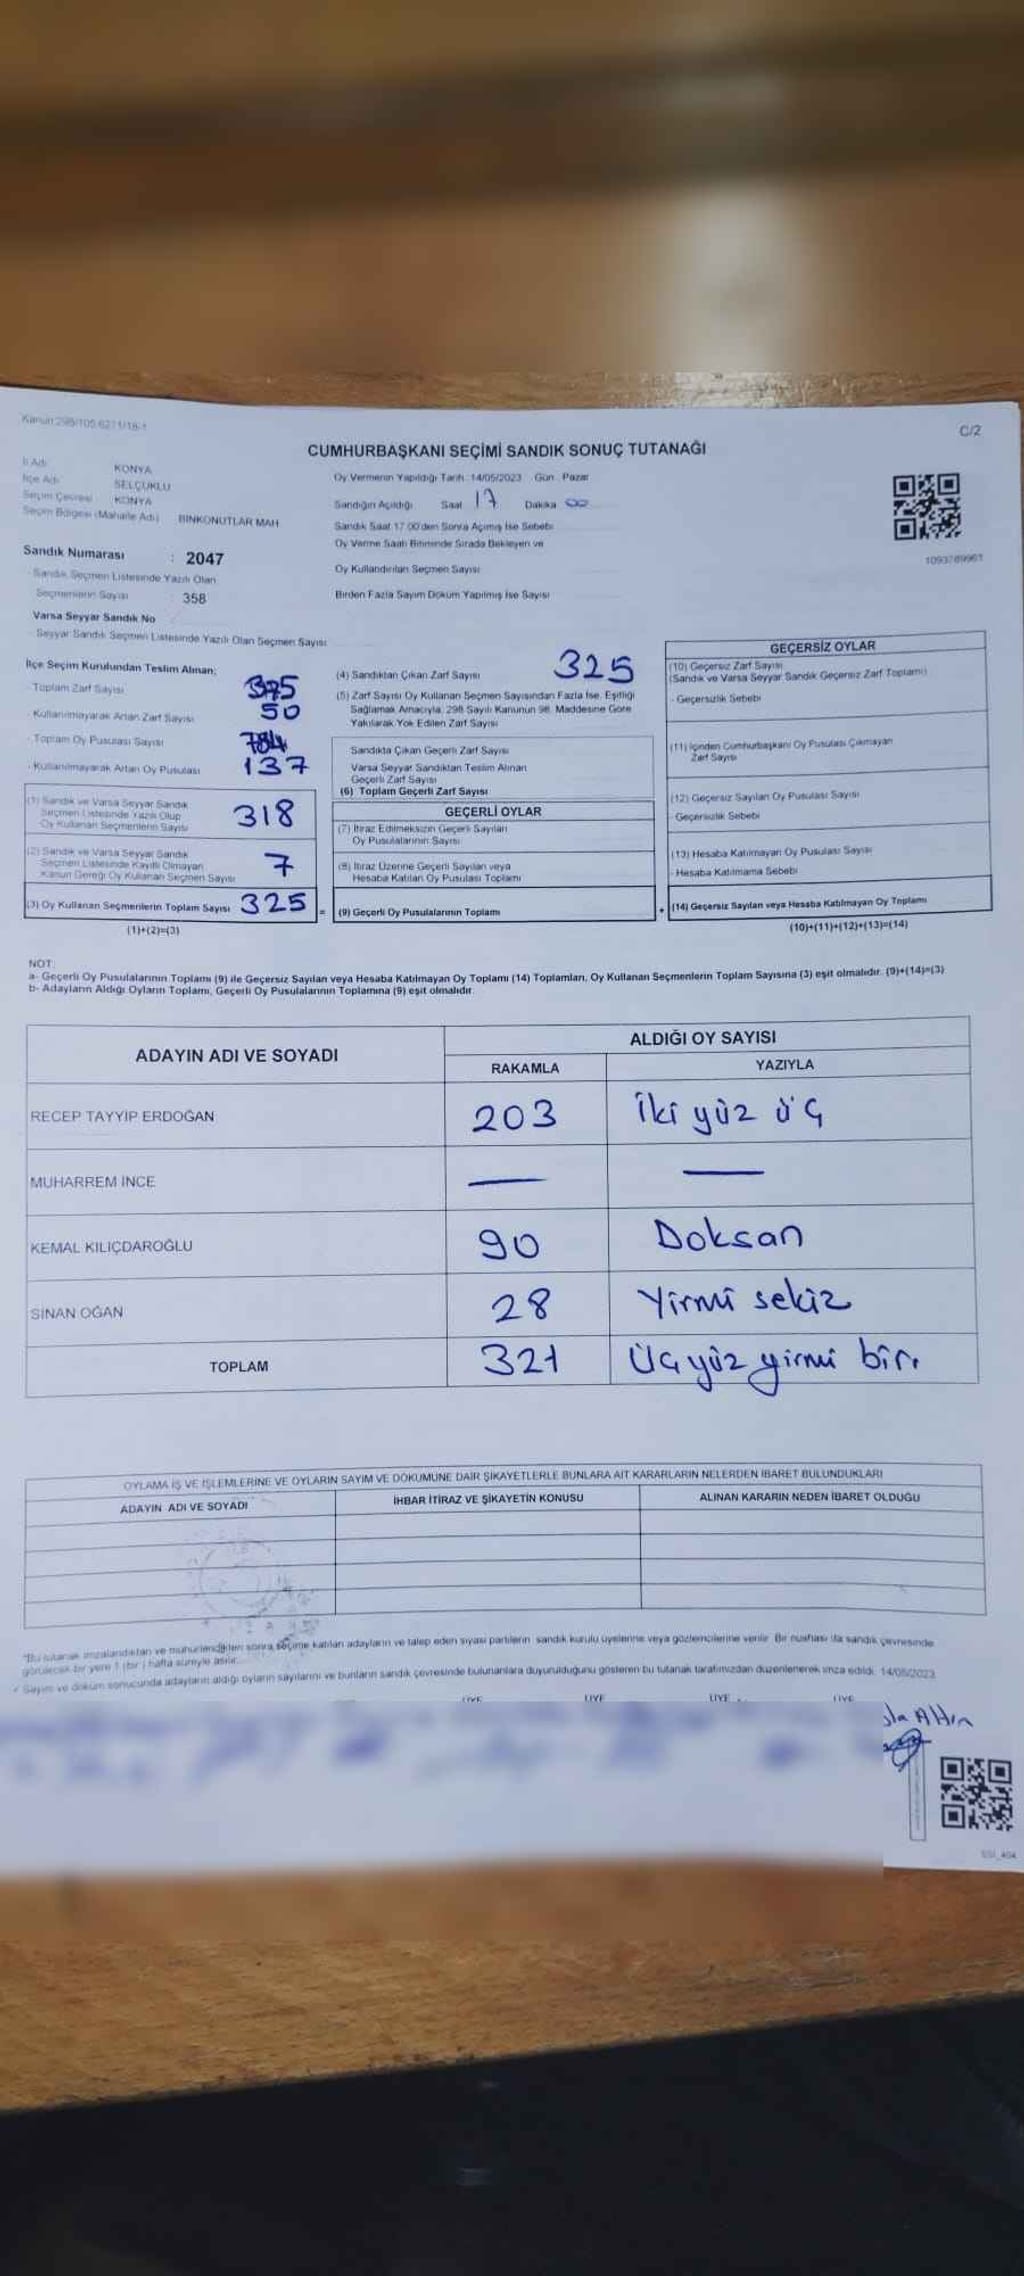 Kanun:298/105,6271/18-1
C/2
CUMHURBAŞKANI SEÇİMİ SANDIK SONUÇ TUTANAĞI
İl Adı KONYA
İlçe Adı SELÇUKLU
Seçim Çevresi KONYA
Seçim Bölgesi (Mahalle Adı) BİNKONUTLAR MAH
Sandık Numarası : 2047
- Sandık Seçmen Listesinde Yazılı Olan
Seçmenlerin Sayısı 358
Varsa Seyyar Sandık No
- Seyyar Sandık Seçmen Listesinde Yazılı Olan Seçmen Sayısı
Oy Vermenin Yapıldığı Tarih :14/05/2023 Gün : Pazar
Sandığın Açıldığı Saat 17 Dakika 00
Sandık Saat 17:00'den Sonra Açılmış İse Sebebi
Oy Verme Saati Bitiminde Sırada Bekleyen ve
Oy Kullandırılan Seçmen Sayısı
Birden Fazla Sayım Döküm Yapılmış İse Sayısı
1093789961
İlçe Seçim Kurulundan Teslim Alınan;
- Toplam Zarf Sayısı 375
- Kullanılmayarak Artan Zarf Sayısı 50
- Toplam Oy Pusulası Sayısı
- Kullanılmayarak Artan Oy Pusulası 137
(1) Sandık ve Varsa Seyyar Sandık
Seçmen Listesinde Yazılı Olup
Oy Kullanan Seçmenlerin Sayısı 318
(2) Sandık ve Varsa Seyyar Sandık
Seçmen Listesinde Kayıtlı Olmayan
Kanun Gereği Oy Kullanan Seçmen Sayısı 7
(3) Oy Kullanan Seçmenlerin Toplam Sayısı 325
(1)+(2)=(3)
=
(4) Sandıktan Çıkan Zarf Sayısı 325
(5) Zarf Sayısı Oy Kullanan Seçmen Sayısından Fazla İse, Eşitliği
Sağlamak Amacıyla, 298 Sayılı Kanunun 98. Maddesine Göre
Yakılarak Yok Edilen Zarf Sayısı
Sandıkta Çıkan Geçerli Zarf Sayısı
Varsa Seyyar Sandıktan Teslim Alınan
Geçerli Zarf Sayısı
(6) Toplam Geçerli Zarf Sayısı
GEÇERLİ OYLAR
(7) İtiraz Edilmeksizin Geçerli Sayılan
Oy Pusulalarının Sayısı
(8) İtiraz Üzerine Geçerli Sayılan veya
Hesaba Katılan Oy Pusulası Toplamı
(9) Geçerli Oy Pusulalarının Toplamı
+
GEÇERSİZ OYLAR
(10) Geçersiz Zarf Sayısı
(Sandık ve Varsa Seyyar Sandık Geçersiz Zarf Toplamı)
- Geçersizlik Sebebi
(11) İçinden Cumhurbaşkanı Oy Pusulası Çıkmayan
Zarf Sayısı
(12) Geçersiz Sayılan Oy Pusulası Sayısı
- Geçersizlik Sebebi
(13) Hesaba Katılmayan Oy Pusulası Sayısı
- Hesaba Katılmama Sebebi
(14) Geçersiz Sayılan veya Hesaba Katılmayan Oy Toplamı
(10)+(11)+(12)+(13)=(14)
NOT:
a- Geçerli Oy Pusulalarının Toplamı (9) ile Geçersiz Sayılan veya Hesaba Katılmayan Oy Toplamı (14) Toplamları, Oy Kullanan Seçmenlerin Toplam Sayısına (3) eşit olmalıdır. (9)+(14)=(3)
b- Adayların Aldığı Oyların Toplamı, Geçerli Oy Pusulalarının Toplamına (9) eşit olmalıdır.
ADAYIN ADI VE SOYADI
ALDIĞI OY SAYISI
RAKAMLA YAZIYLA
RECEP TAYYİP ERDOĞAN 203 İki yüz üç
MUHARREM İNCE — —
KEMAL KILIÇDAROĞLU 90 Doksan
SİNAN OĞAN 28 Yirmi sekiz
TOPLAM 321 Üçyüz yirmi bir.
OYLAMA İŞ VE İŞLEMLERİNE VE OYLARIN SAYIM VE DÖKÜMÜNE DAİR ŞİKAYETLERLE BUNLARA AİT KARARLARIN NELERDEN İBARET BULUNDUKLARI
ADAYIN ADI VE SOYADI İHBAR İTİRAZ VE ŞİKAYETİN KONUSU ALINAN KARARIN NEDEN İBARET OLDUĞU
*Bu tutanak imzalandıktan ve mühürlendikten sonra seçime katılan adayların ve talep eden siyasi partilerin sandık kurulu üyelerine veya gözlemcilerine verilir. Bir nüshası da sandık çevresinde
görülecek bir yere 1 (bir ) hafta süreyle asılır.
Sayım ve döküm sonucunda adayların aldığı oyların sayılarını ve bunların sandık çevresinde bulunanlara duyurulduğunu gösteren bu tutanak tarafımızdan düzenlenerek imza edildi. 14/05/2023
ÜYE ÜYE ÜYE ÜYE